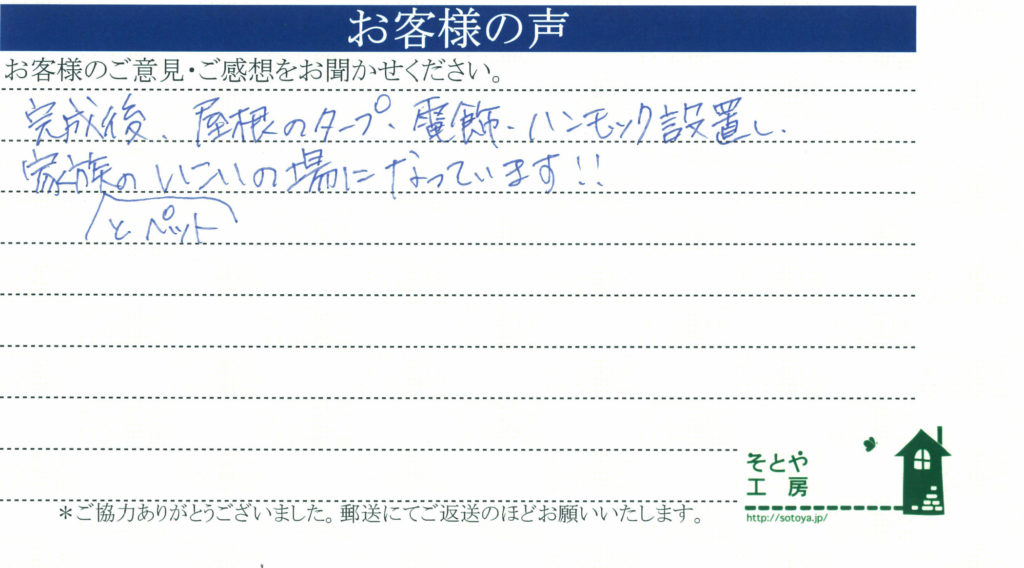 お客様の声
お客様のご意見・ご感想をお聞かせください。
完成後、屋根のタープ、電飾、ハンモック設置し、
家族のいこいの場になっています!!
とペット
そとや
工房
http://sotoya.jp/
*ご協力ありがとうございました。郵送にてご返送のほどお願いいたします。